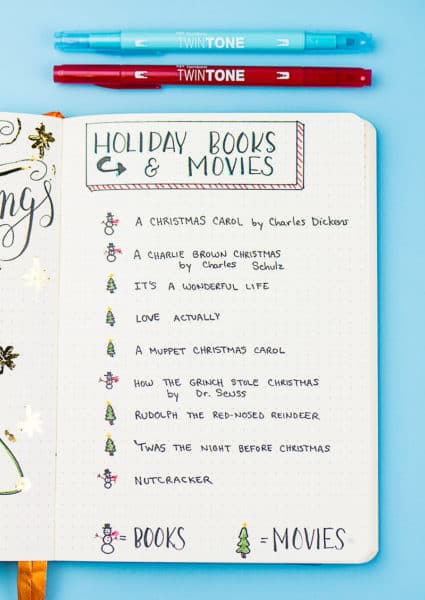 TWINTONE
TWINTONE
ngs
HOLIDAY BOOKS
& MOVIES
A CHRISTMAS CAROL by Charles Dickens
A CHARLIE BROWN CHRISTMAS
by Charles Schulz
IT'S A WONDERFUL LIFE
LOVE ACTUALLY
A MUPPET CHRISTMAS CAROL
HOW THE GRINCH STOLE CHRISTMAS
by Dr. Seuss
RUDOLPH THE RED-NOSED REINDEER
'TWAS THE NIGHT BEFORE CHRISTMAS
NUTCRACKER
= BOOKS = MOVIES